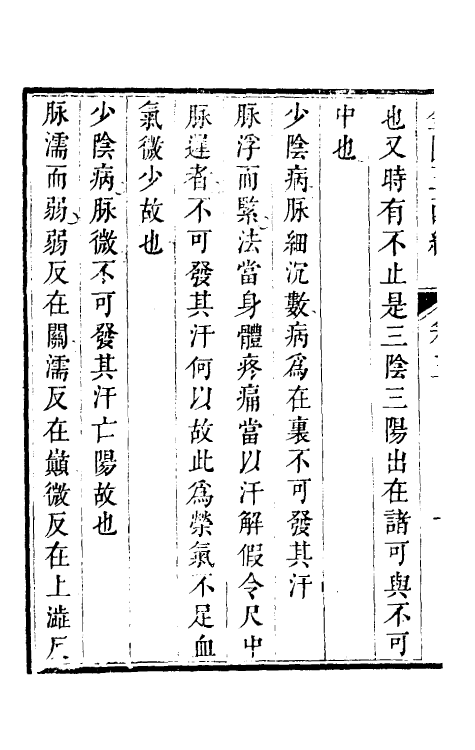 也又時有不止是三陰三陽出在諸可與不可
中也
少陰病脉細沉數病爲在裏不可發其汗
脉浮而緊法當身體疼痛當以汗解假令尺中
脉遲者不可發其汗何以故此爲榮氣不足血
氣微少故也
少陰病脉微不可發其汗亡陽故也
脉濡而弱弱反在關濡反在巔微反在上澁反